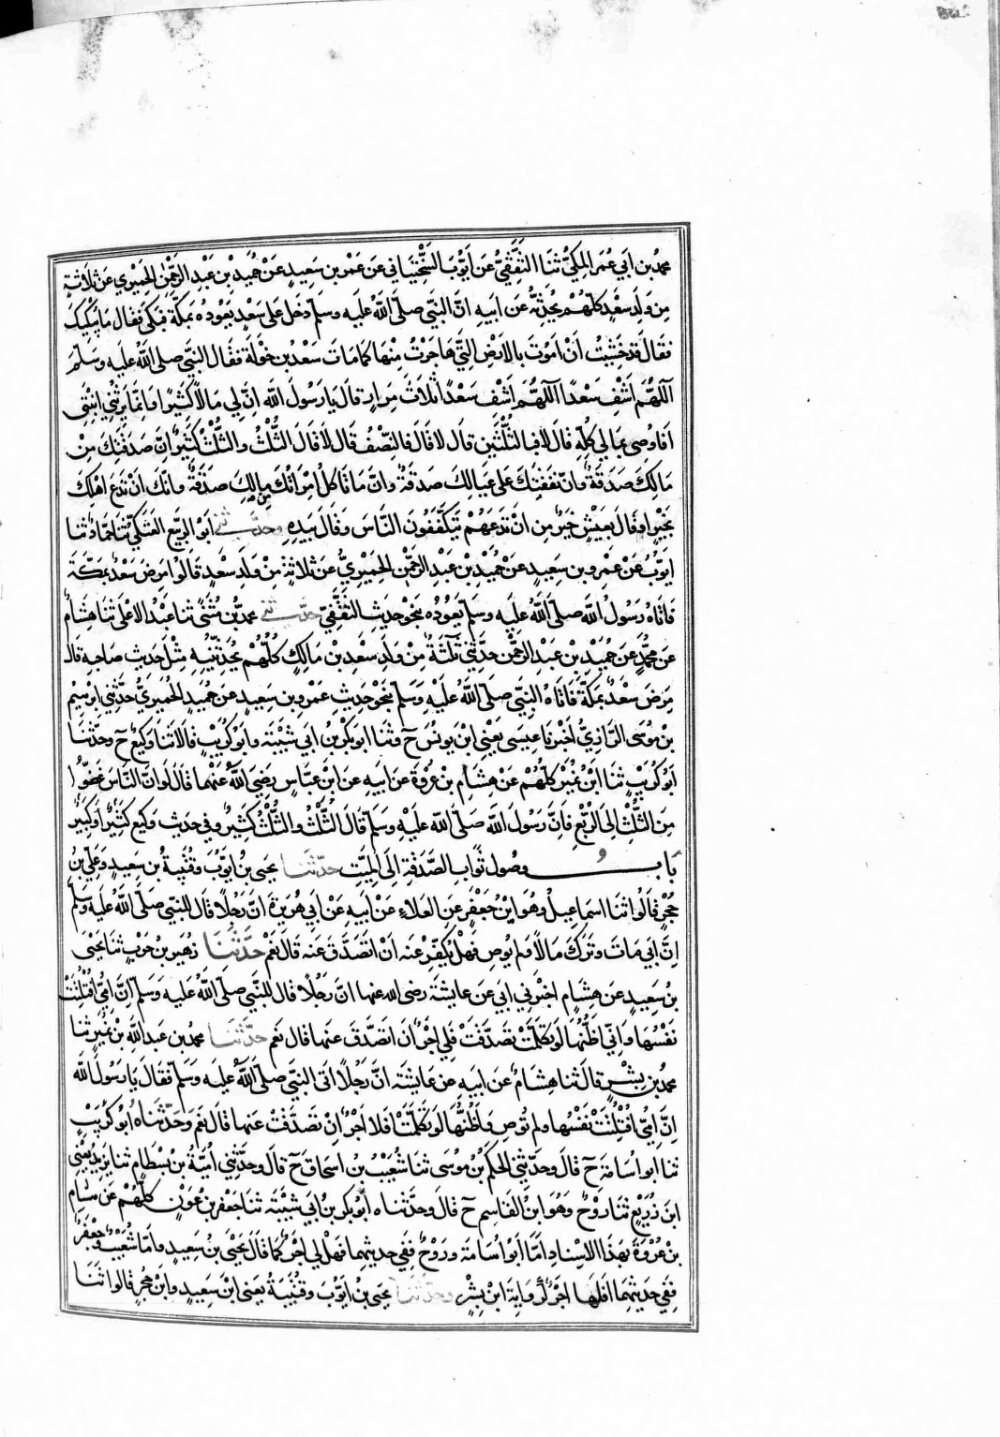 محمد بن ابي عمر المكيّ ثنا الثقفيّ عن ايّوب السّختياني عن عمرو بن سعيد عن حُميد بن عبد الرّحمٰن الحميري عن ثلاثة
من ولد سعد كلّهم يحدّثه عن ابيه انّ النّبي صلّى الله عليه وسلّم دخل على سعد يعوده بمكّة فبكى فقال ما يبكيك
فقال قد خشيت ان اموت بالارض الّتي هاجرت منها كما مات سعد بن خولة فقال النّبي صلى الله عليه وسلّم
اللّهمّ اشف سعدًا اللّهمّ اشف سعدًا ثلاث مرار قال يا رسول الله انّ لي مالاً كثيرًا وانّما يرثني ابنتي
افاوصي بمالي كلّه قال لا قال فبالثلثين قال لا قال فالنّصف قال لا قال الثّلث قال الثّلث والثّلث كثير انّ صدقتك من
مالك صدقة وانّ نفقتك على عيالك صدقة وانّ ما تاكل امراتك من مالك صدقة وانّك ان تدع اهلك
بخير او قال بعيش خير من ان تدعهم يتكفّفون النّاس وقال بيده وحدّثني ابو الرّبيع العتكيّ ثنا حمّاد ثنا
ايّوب عن عمرو بن سعيد عن حُميد بن عبد الرّحمٰن الحميريّ عن ثلاثة من ولد سعد قالوا مرض سعد بمكّة
فاتاه رسول الله صلّى الله عليه وسلم يعوده بنحو حديث الثقفيّ حدّثني محمّد بن مثنّى ثنا عبد الاعلى ثنا هشام
عن محمّد عن حميد بن عبد الرحمن حدّثني ثلثة من ولد سعد بن مالك كلّهم يحدّثنيه مثل حديث صاحبه قال
مرض سعد بمكّة فاتاه النّبي صلّى الله عليه وسلّم بنحو حديث عمرو بن سعيد عن حميد الحميريّ حدّثني ابرهيم
بن موسى الرّازيّ اخبرنا عيسى يعني ابن يونس ح وثنا ابو بكر بن ابي شيبة وابو كريب قالا ثنا وكيع ح وحدّثنا
ابو كريب ثنا ابن نمير كلّهم عن هشام بن عروة عن ابيه عن ابن عبّاس رضي الله عنهما قال لو انّ النّاس غضّوا
من الثّلث الى الرّبع فانّ رسول الله صلّى الله عليه وسلّم قال الثّلث والثّلث كثير وفي حديث وكيع كثير او كبير
باب وصول ثواب الصّدقة الى الميّت حدّثنا يحيى بن ايّوب وقتيبة بن سعيد وعلي بن
حجر قالوا ثنا اسماعيل وهو ابن جعفر عن العلاء عن ابيه عن ابي هريرة انّ رجلًا قال للنّبي صلّى الله عليه وسلّم
انّ ابي مات وترك مالاً ولم يوص فهل يكفّر عنه ان اتصدّق عنه قال نعم حدّثنا زهير بن حرب ثنا يحيى
بن سعيد عن هشام اخبرني ابي عن عايشة رضى الله عنها انّ رجلًا قال للنّبي صلّى الله عليه وسلّم انّ امّي افتلتت
نفسها واني اظنّها لو تكلّمت تصدّقت فلي اجر ان اتصدّق عنها قال نعم حدّثنا محمد بن عبد الله بن نمير ثنا
محمد بن بشر قال ثنا هشام عن ابيه عن عايشة انّ رجلًا اتى النّبي صلّى الله عليه وسلّم فقال يا رسول الله
انّ امّي افتلتت نفسها ولم توص واظنّها لو تكلّمت تصدّقت افلها اجر ان تصدّقت عنها قال نعم وحدّثناه ابو كريب
ثنا ابو اسامة ح قال وحدّثني الحكم بن موسى ثنا شعيب بن اسحاق ح قال وحدّثني اميّة بن بسطام ثنا يزيد يعني
ابن زريع ثنا روح وهو ابن القاسم ح قال وحدّثناه ابو بكر بن ابي شيبة ثنا جعفر بن عون كلّهم عن هشام
بن عروة بهذا الاسناد امّا ابو اسامة وروح ففي حديثهما فهل لي اجر كما قال يحيى بن سعيد وامّا شعيب وجعفر
ففي حديثهما افلها اجر كرواية ابن بشر وحدّثنا يحيى بن ايّوب وقتيبة يعني ابن سعيد وابن حجر قالوا ثنا